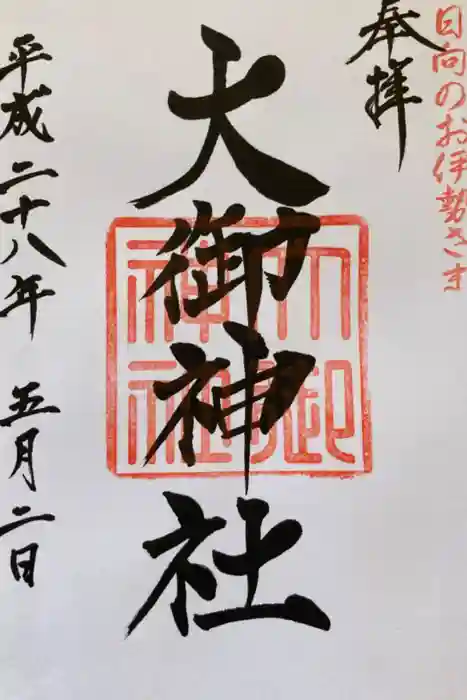 日向のお伊勢さま
奉拝
大御神社
大御
神社
平成二十八年 五月二日